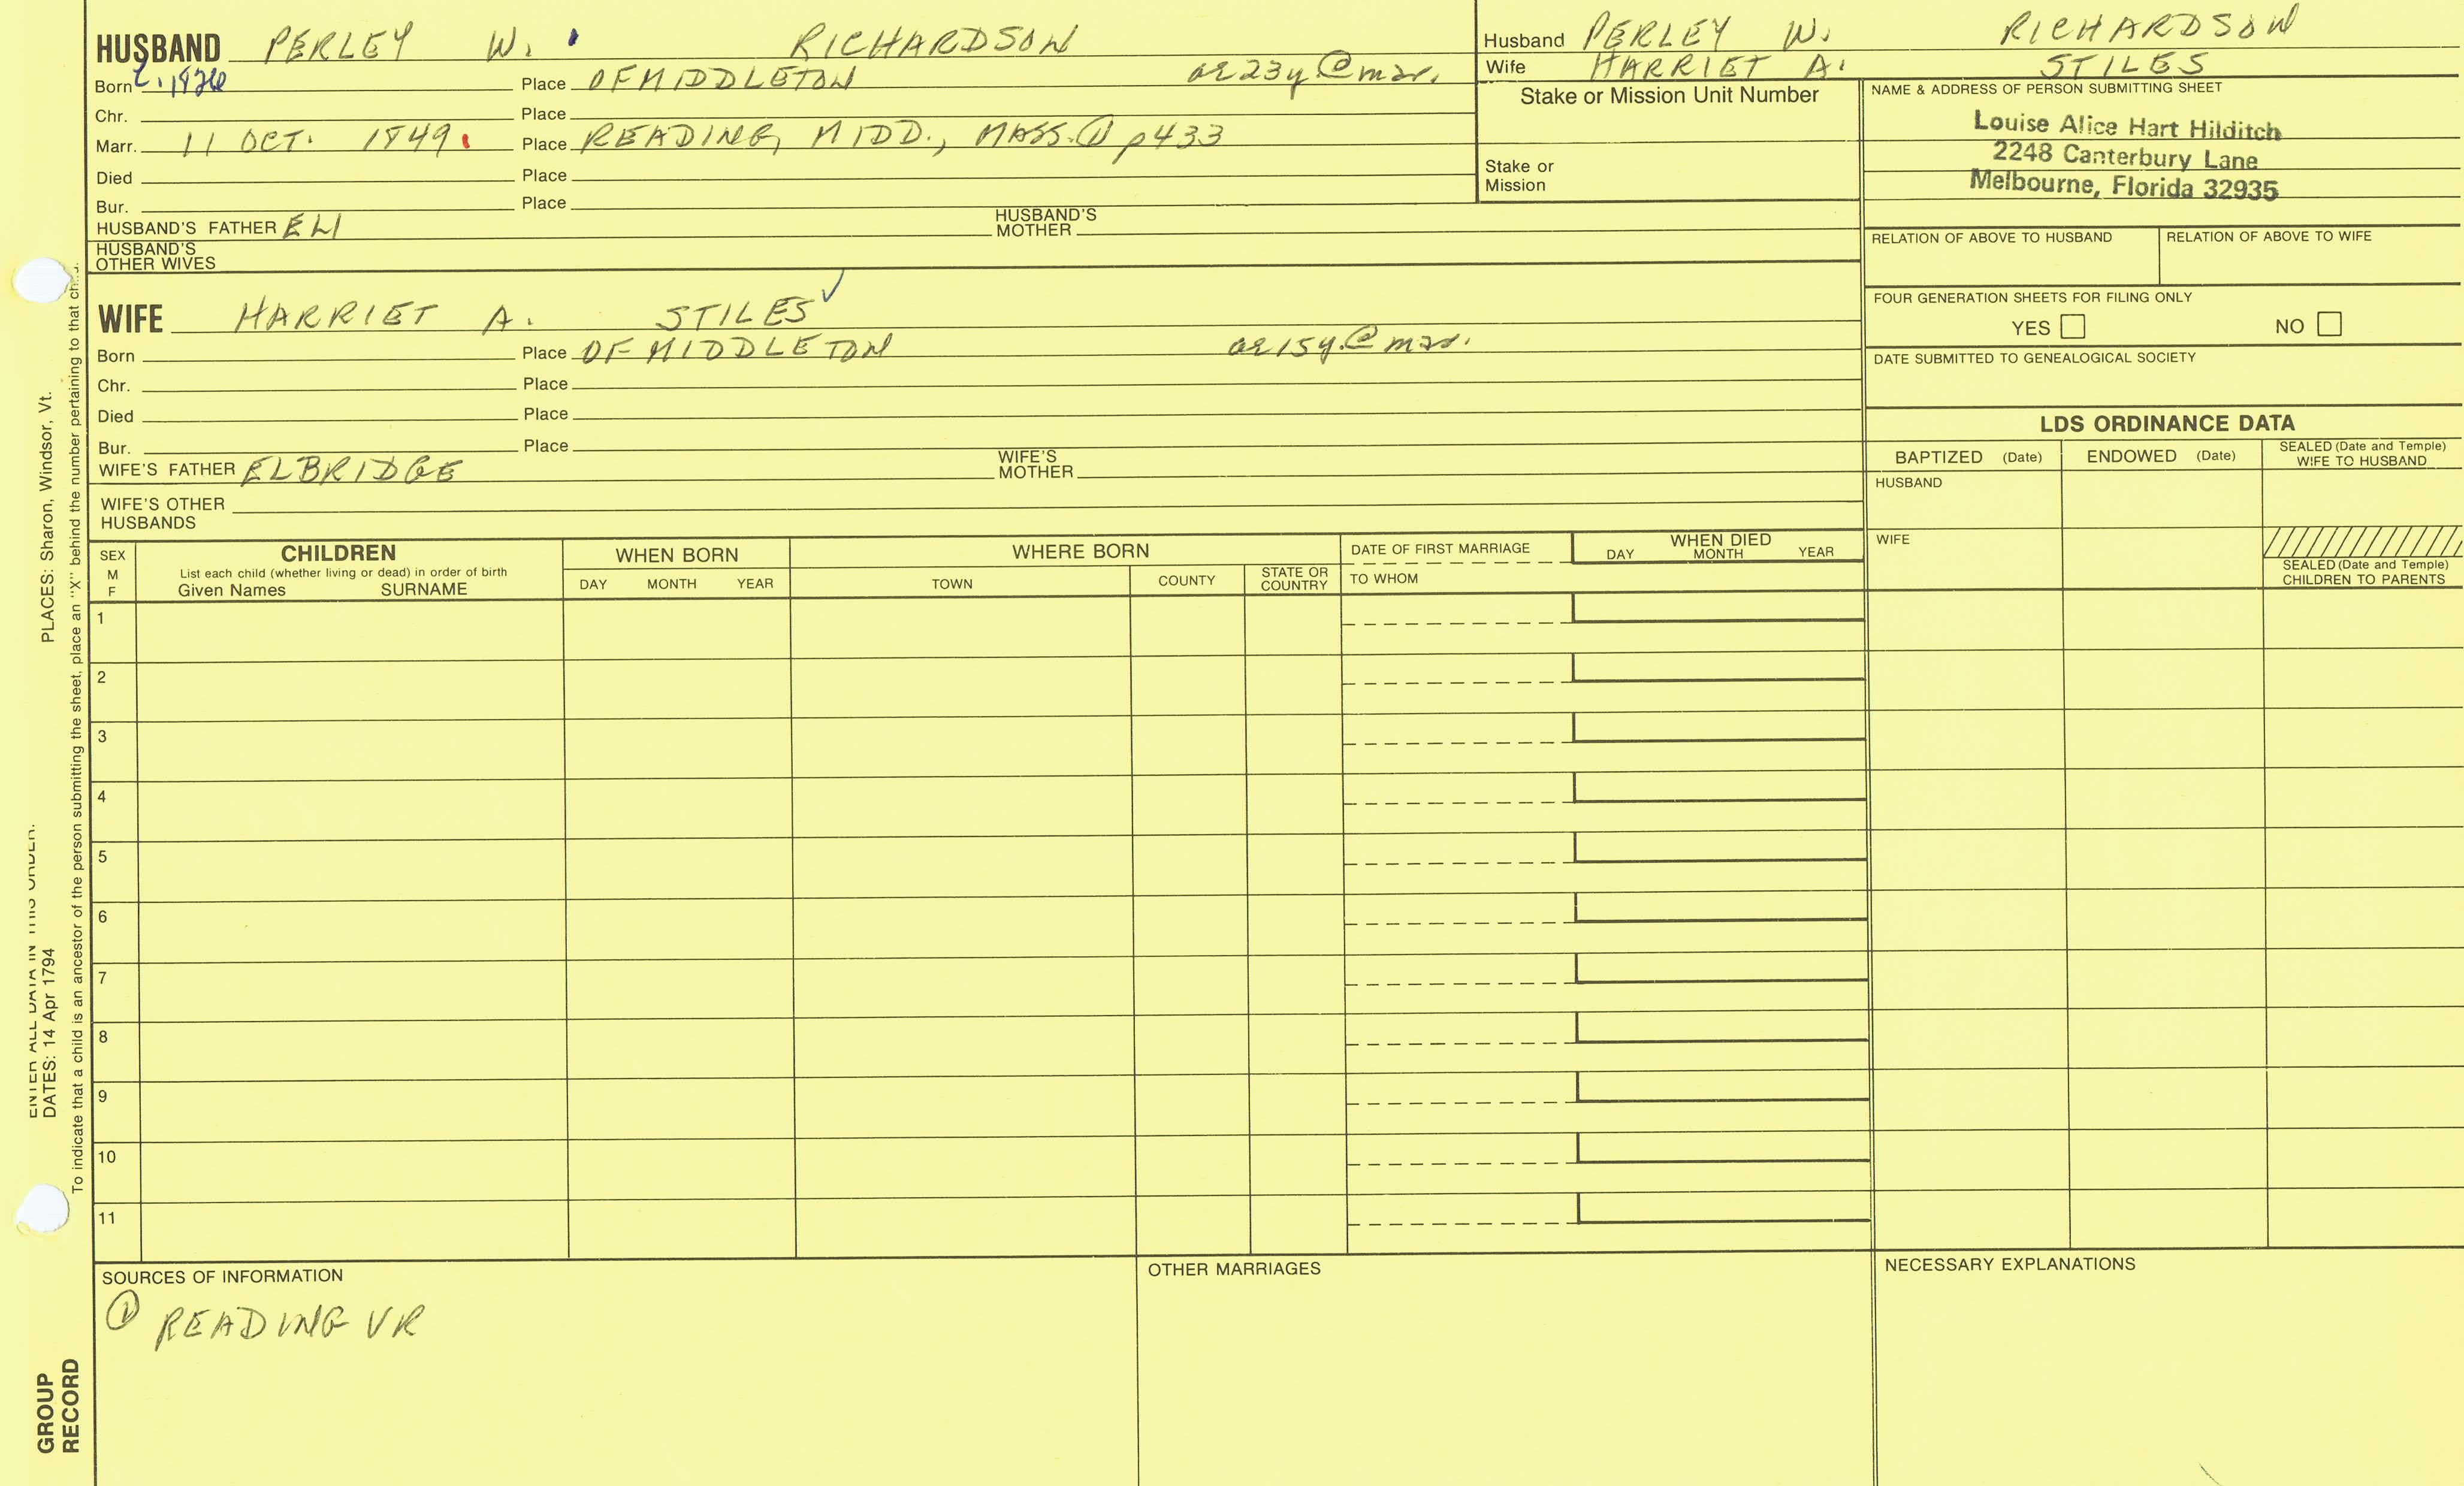 HUSBAND PERLEY W. RICHARDSON
Born c. 1826 Place OF MIDDLETON ae 23y @ mar.
Chr. Place
Marr. 11 OCT. 1849. Place READING, MIDD., MASS. ① p433
Died Place
Bur. Place
HUSBAND'S FATHER ELI HUSBAND'S MOTHER
HUSBAND'S OTHER WIVES
Husband PERLEY W. RICHARDSON
Wife HARRIET A. STILES
Stake or Mission Unit Number
Stake or
Mission
NAME & ADDRESS OF PERSON SUBMITTING SHEET
Louise Alice Hart Hilditch
2248 Canterbury Lane
Melbourne, Florida 32935
RELATION OF ABOVE TO HUSBAND RELATION OF ABOVE TO WIFE
FOUR GENERATION SHEETS FOR FILING ONLY
YES NO
DATE SUBMITTED TO GENEALOGICAL SOCIETY
WIFE HARRIET A. STILES ✓
Born Place OF MIDDLETON ae 15y. @ mar.
Chr. Place
Died Place
Bur. Place
WIFE'S FATHER ELBRIDGE WIFE'S MOTHER
WIFE'S OTHER HUSBANDS
LDS ORDINANCE DATA
BAPTIZED (Date) ENDOWED (Date) SEALED (Date and Temple) WIFE TO HUSBAND
HUSBAND
WIFE
SEALED (Date and Temple) CHILDREN TO PARENTS
SEX
M
F
CHILDREN
List each child (whether living or dead) in order of birth
Given Names SURNAME
WHEN BORN
DAY MONTH YEAR
WHERE BORN
TOWN COUNTY STATE OR COUNTRY
DATE OF FIRST MARRIAGE
TO WHOM
WHEN DIED
DAY MONTH YEAR
1
2
3
4
5
6
7
8
9
10
11
SOURCES OF INFORMATION
① READING VR
OTHER MARRIAGES
NECESSARY EXPLANATIONS
ENTER ALL DATA IN THIS ORDER.
DATES: 14 Apr 1794 PLACES: Sharon, Windsor, Vt.
To indicate that a child is an ancestor of the person submitting the sheet, place an "X" behind the number pertaining to that ch
GROUP
RECORD